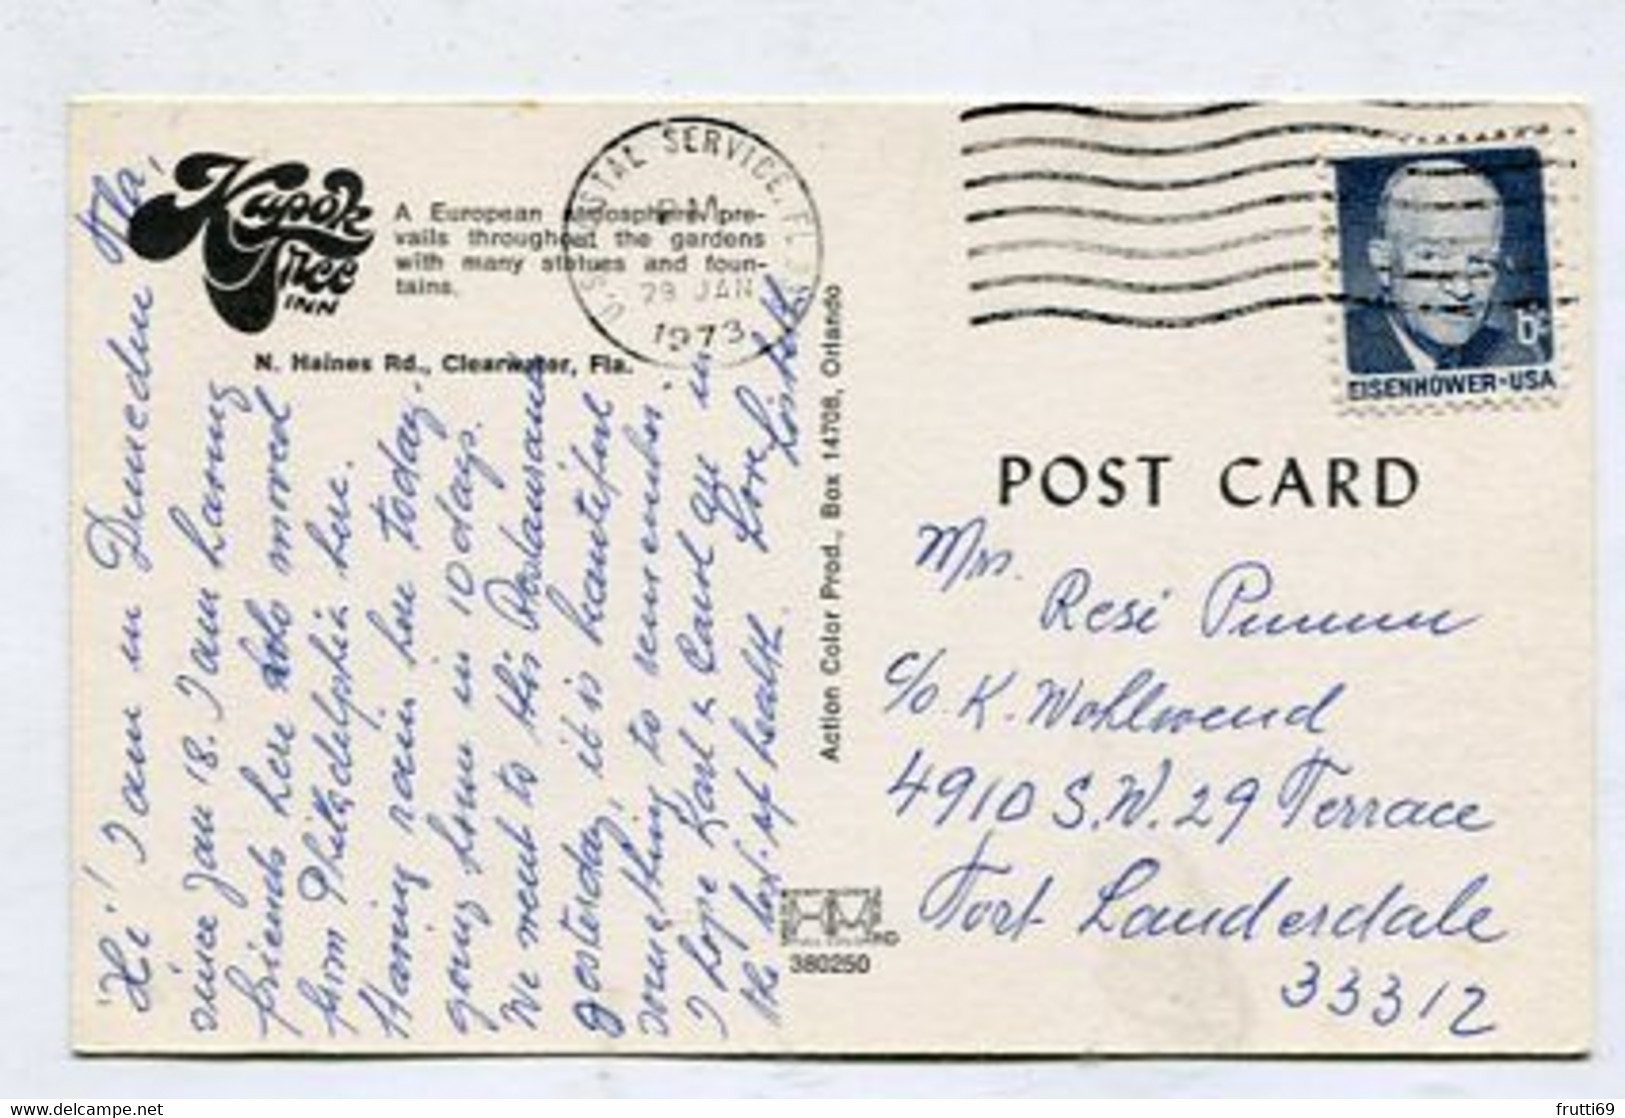 Kapok
Tree
INN
A European atmosphere pre-
vails throughout the gardens
with many statues and foun-
tains.
N. Haines Rd., Clearwater, Fla.
U.S. POSTAL SERVICE, FL
PM
29 JAN
1973
EISENHOWER-USA
6c
POST CARD
Hi! I am in Dunedin Fla,
since Jan 18. I am having
friends here who moved
from Philadelphia here.
Having rain here today.
going home in 10 days.
We went to this Restaurant
yesterday, it is beautiful
something to remember.
I hope Karl & Carl are in
the best of health. Love
Action Color Prod., Box 14708, Orlando
380250
Mrs.
Resi
c/o K. Wohlwend
4910 S.W. 29 Terrace
Fort Lauderdale
33312
frutti69